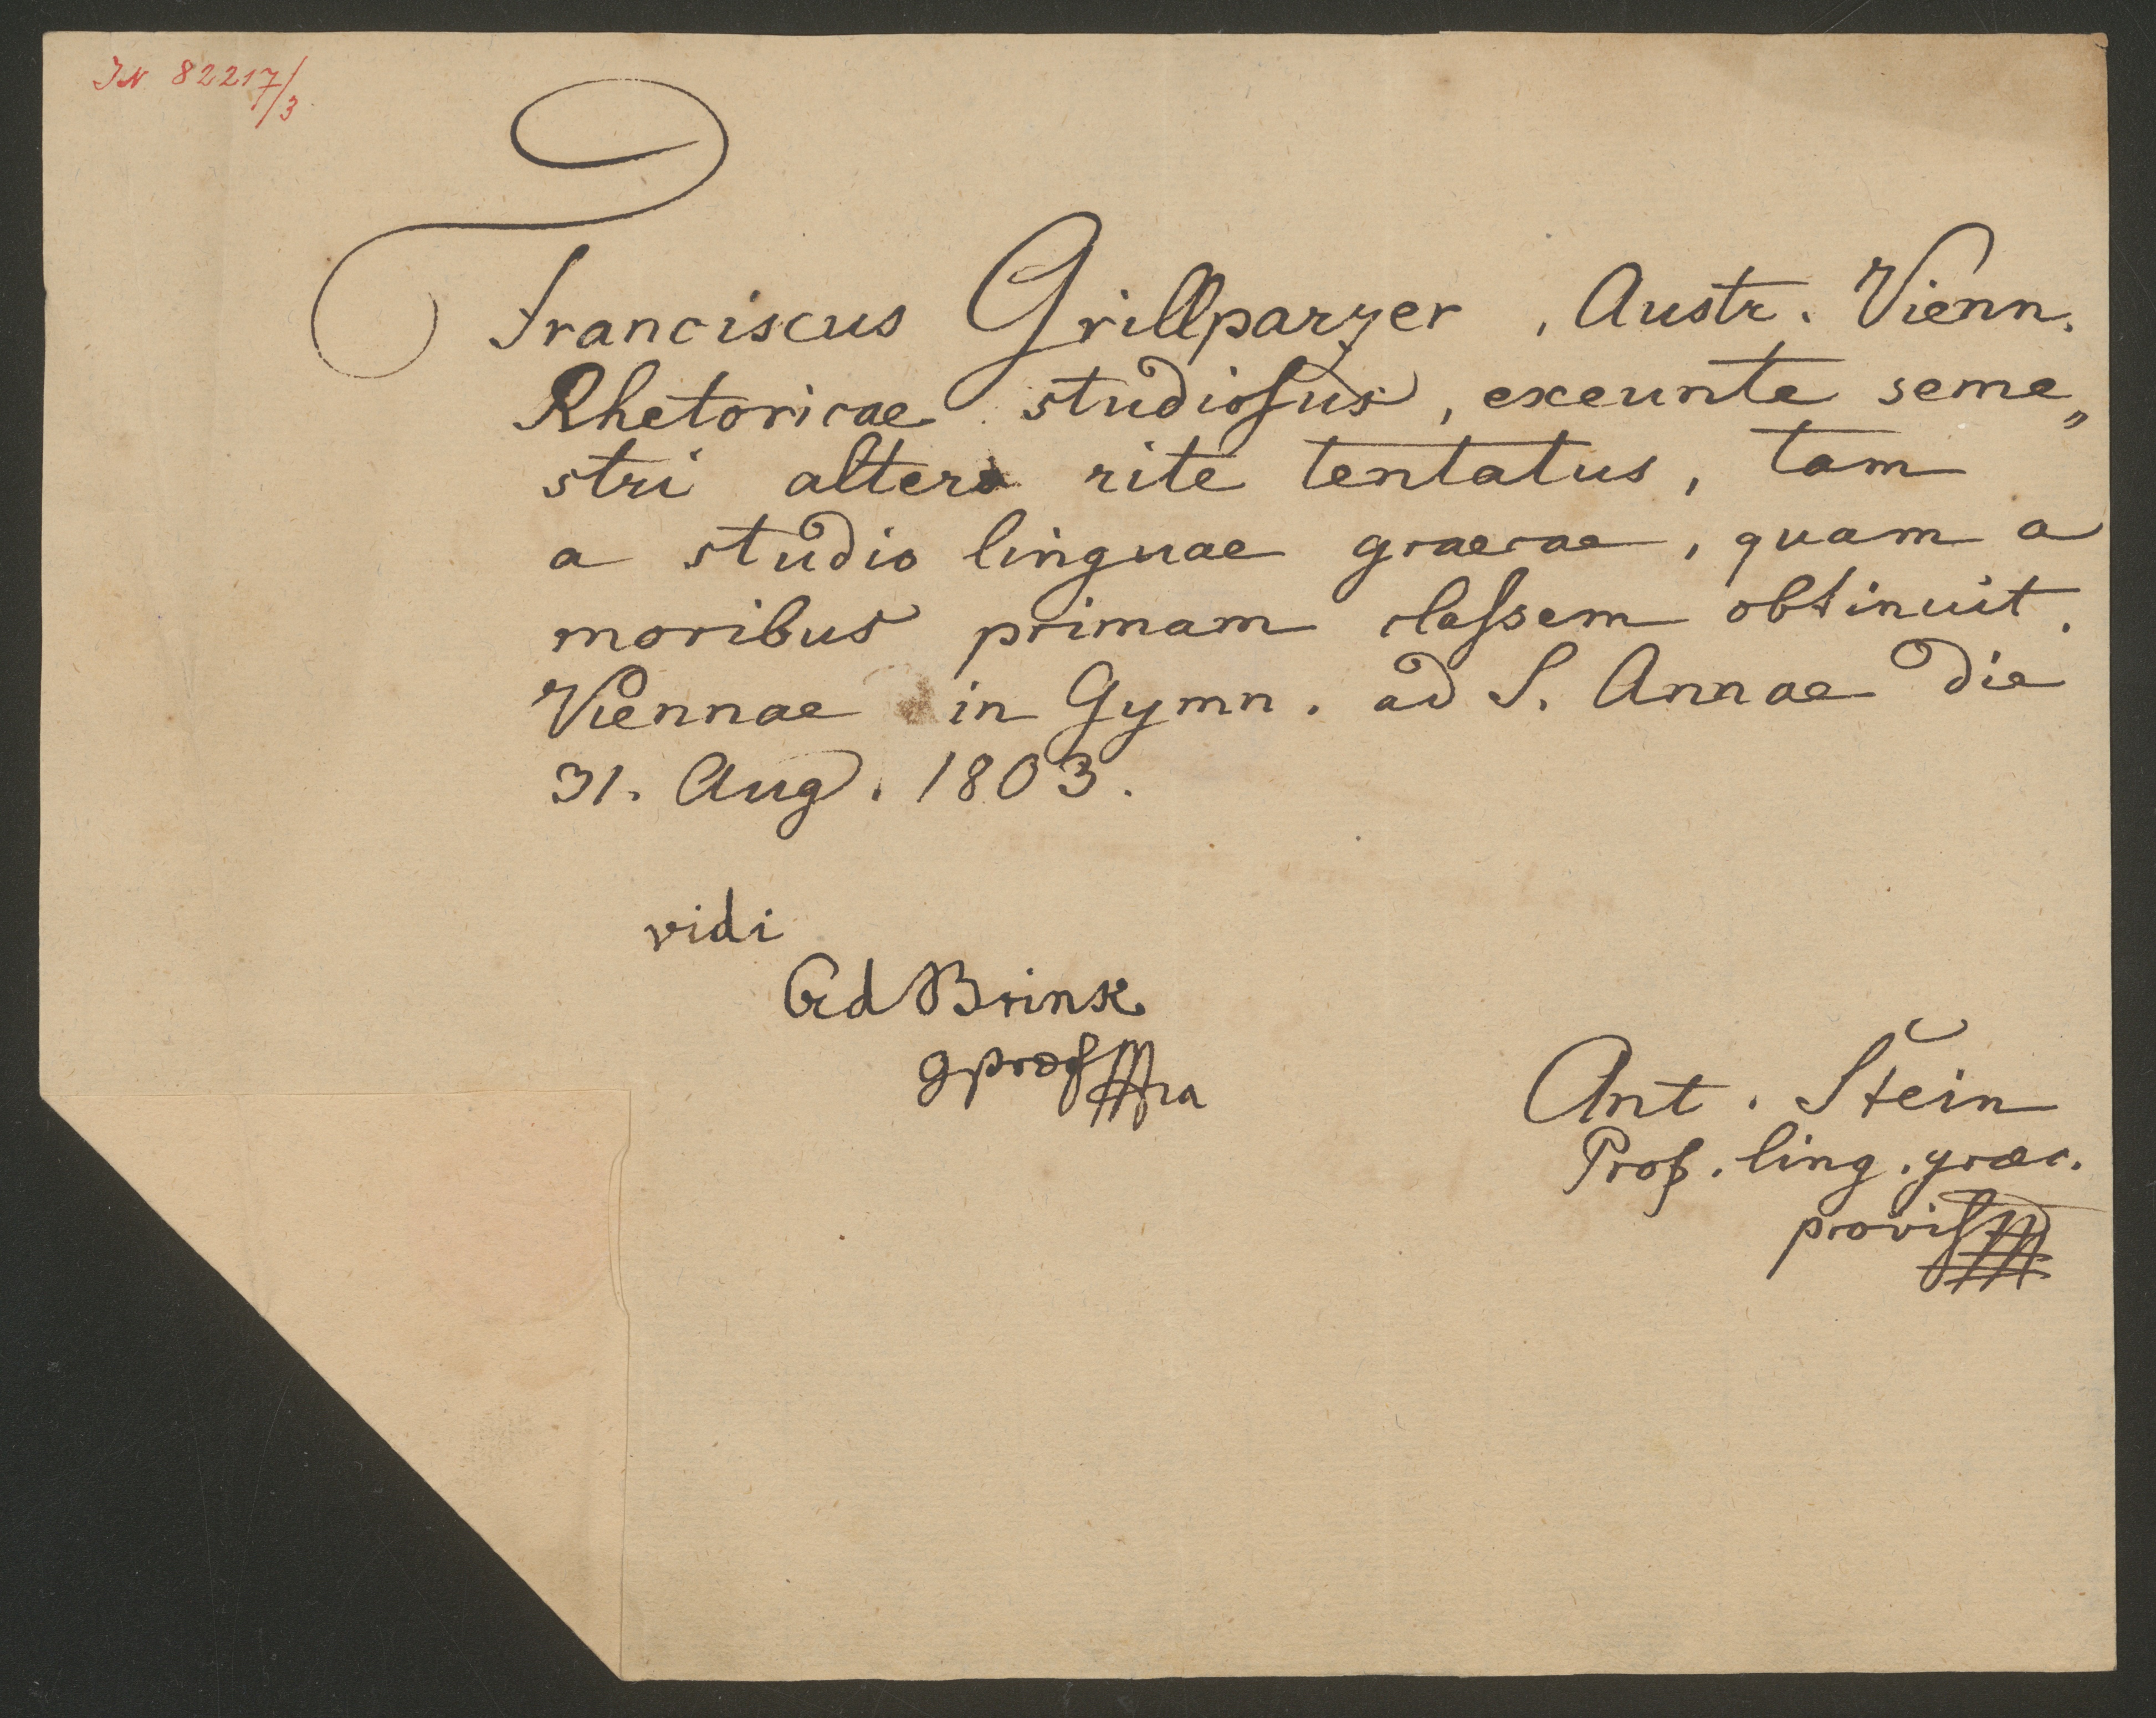 IN 82217/3
Franciscus Grillparzer, Austr. Vienn.
Rhetoricae studiosus, exeunte seme„
stri altero rite tentatus, tam
a studio linguae graecae, quam a
moribus primam classem obtinuit.
Viennae in Gymn. ad S. Annae die
31. Aug. 1803.
vidi
Brink
Ant. Stein
Prof. ling. graec.